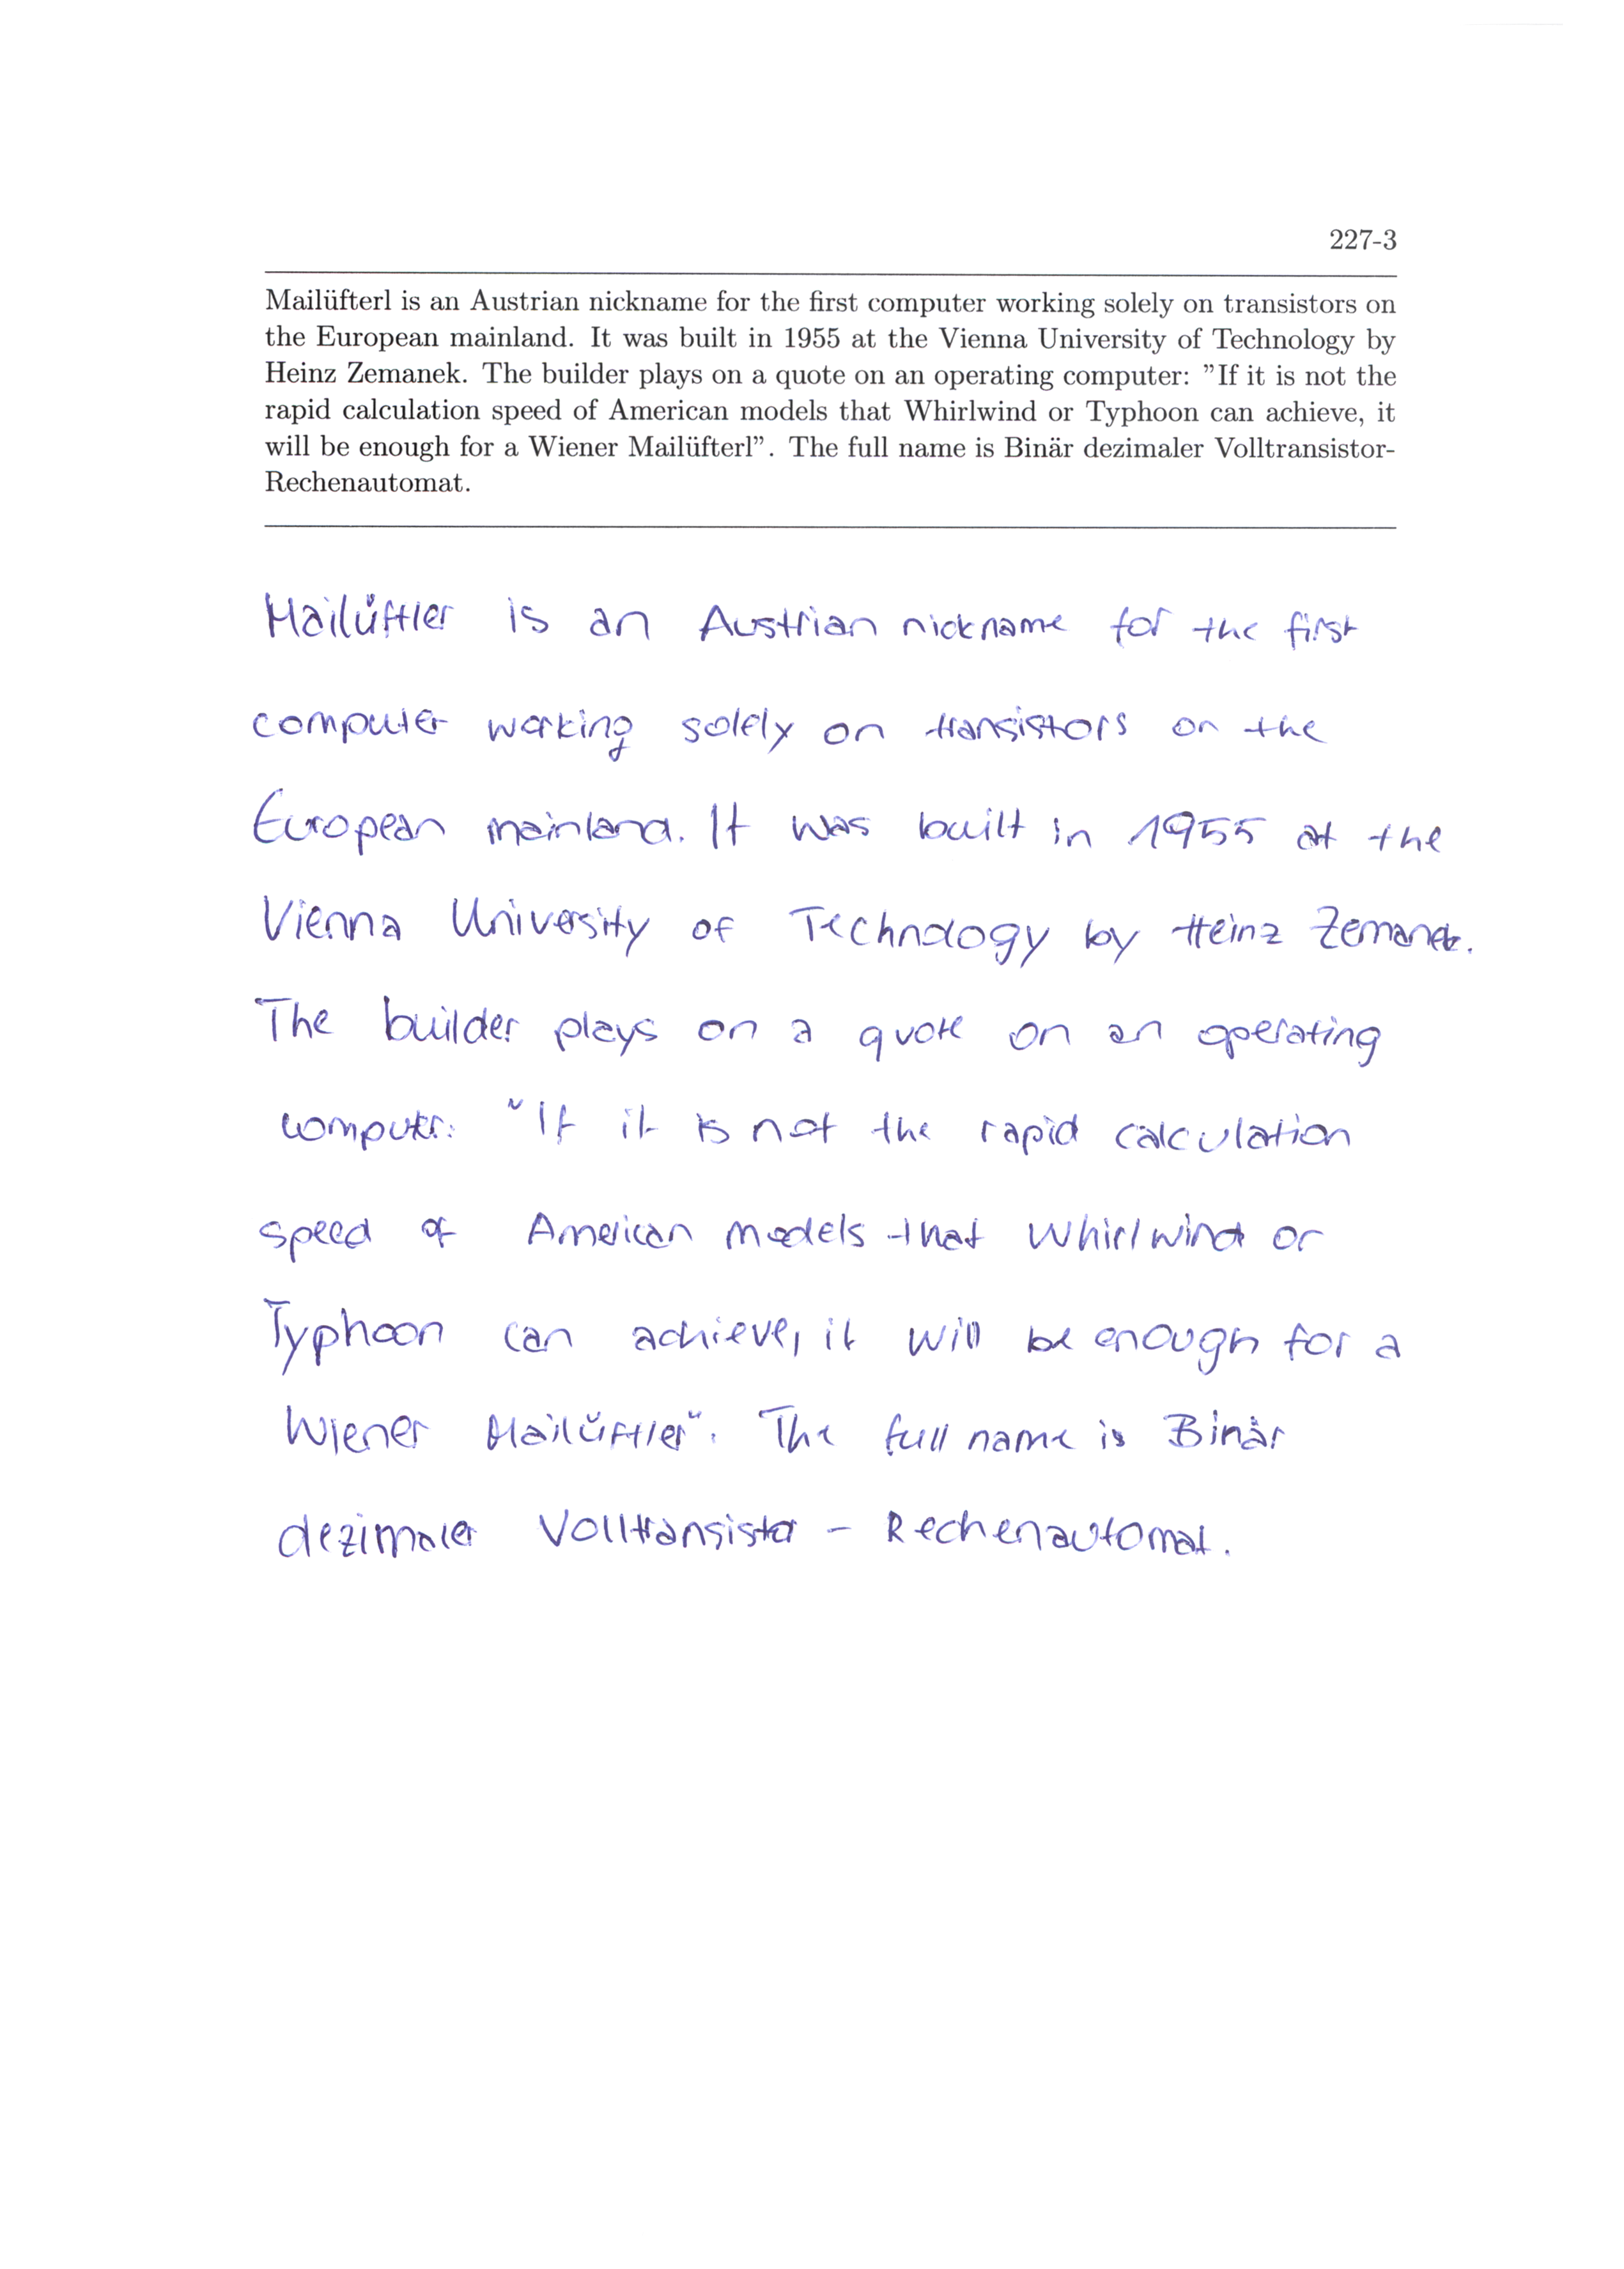 227-3
Mailüfterl is an Austrian nickname for the first computer working solely on transistors on
the European mainland. It was built in 1955 at the Vienna University of Technology by
Heinz Zemanek. The builder plays on a quote on an operating computer: ”If it is not the
rapid calculation speed of American models that Whirlwind or Typhoon can achieve, it
will be enough for a Wiener Mailüfterl”. The full name is Binär dezimaler Volltransistor-
Rechenautomat.
Mailüftler is an Austrian nickname for the first
computer working solely on transistors on the
European mainland. It was built in 1955 at the
Vienna University of Technology by Heinz Zemanek.
The builder plays on a quote on an operating
computer: "If it is not the rapid calculation
speed of American models that Whirlwind or
Typhoon can achieve, it will be enough for a
Wiener Mailüftler". The full name is Binär
dezimaler Volltransistor - Rechenautomat.